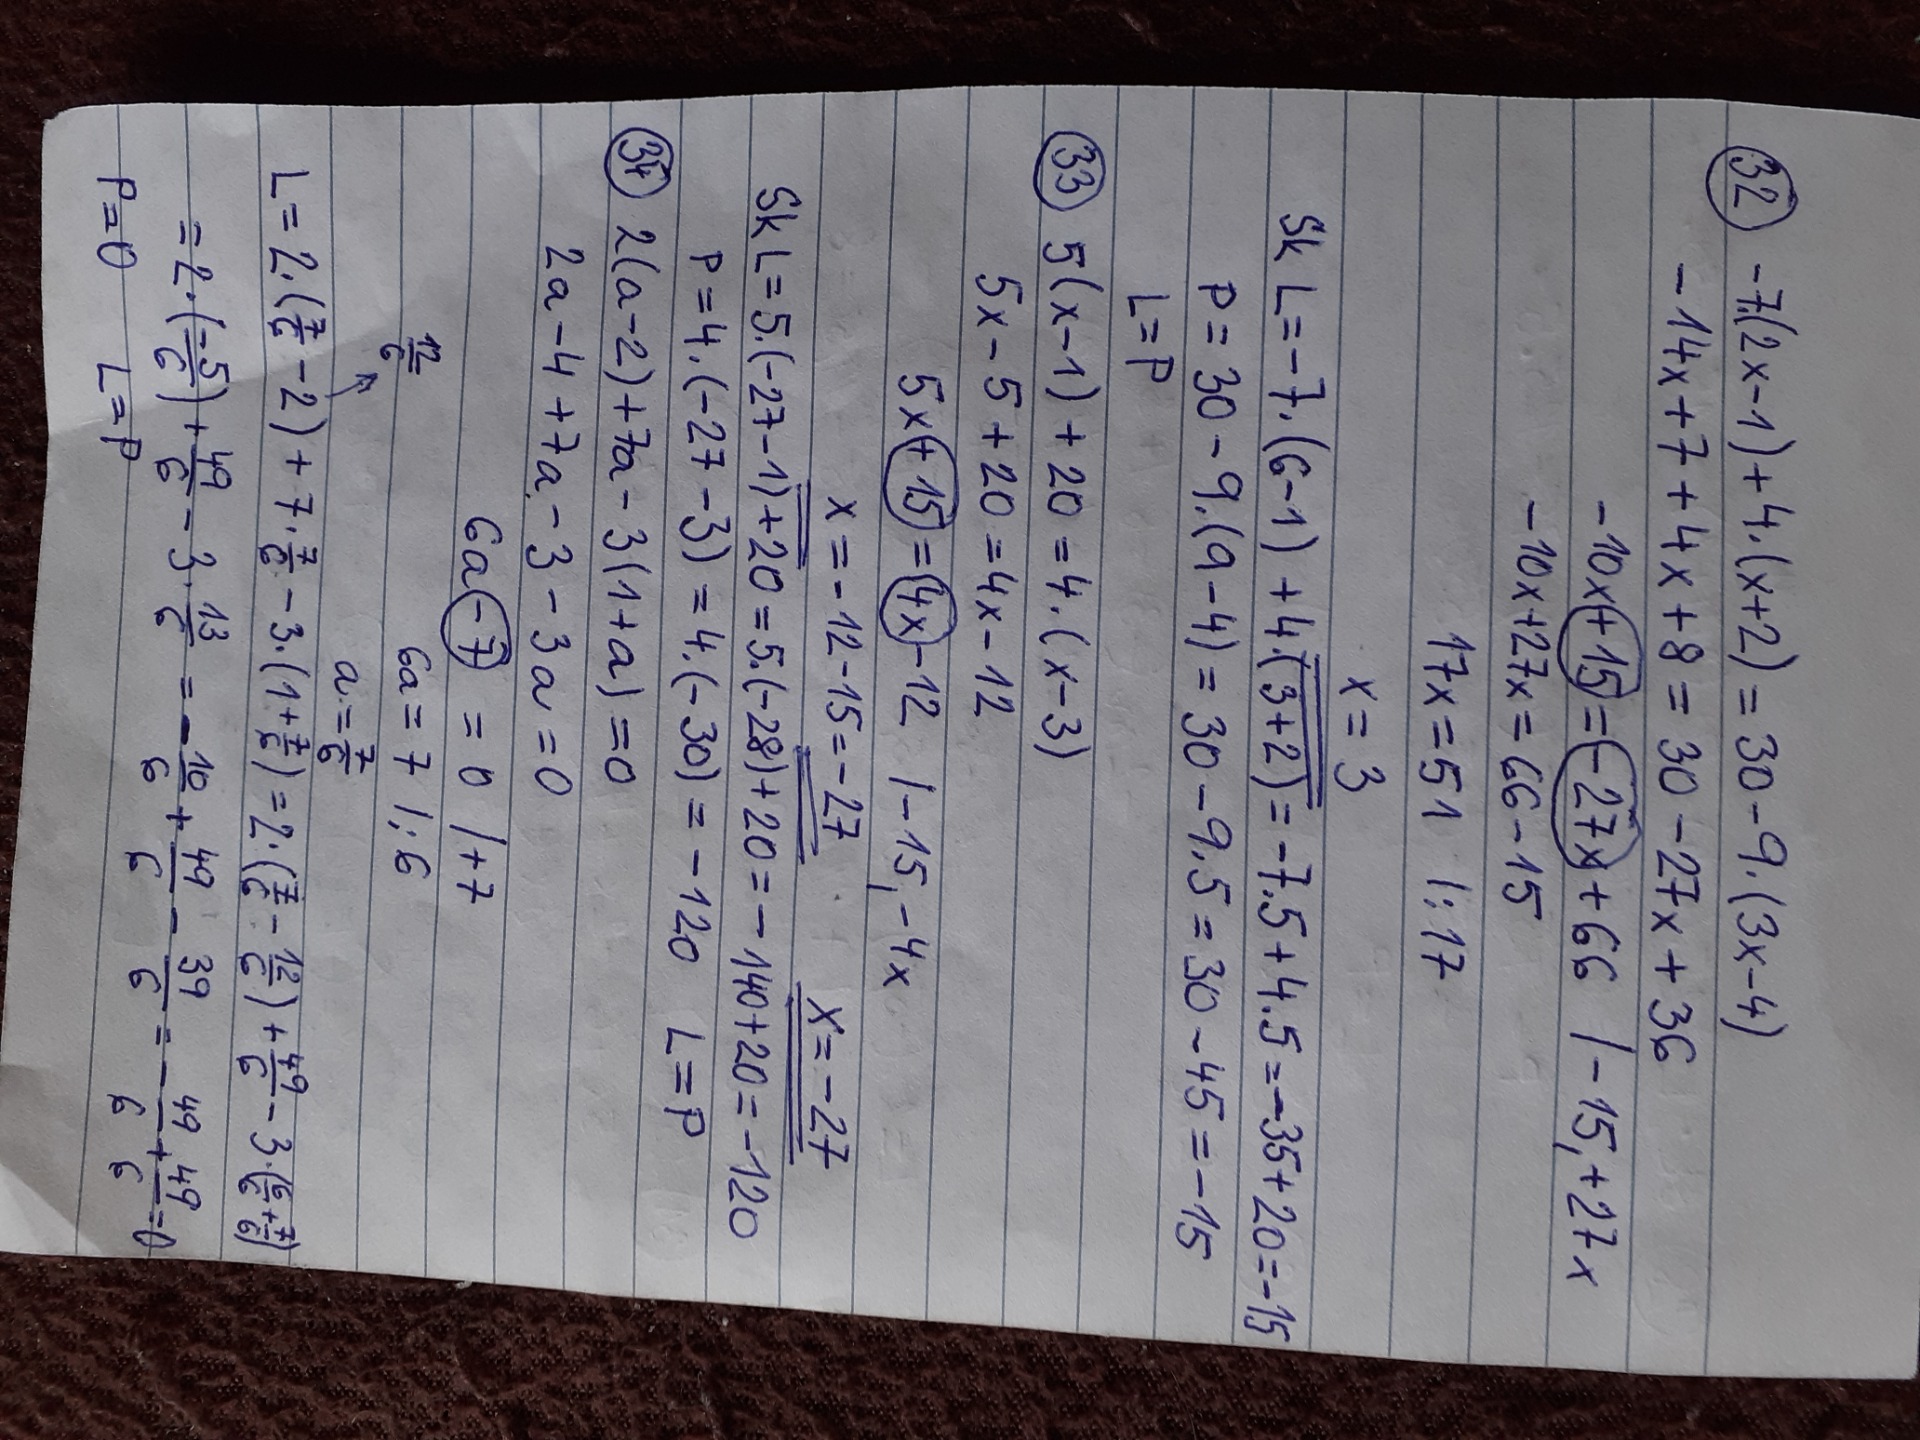 32 -7.(2x-1)+4.(x+2)=30-9.(3x-4)
-14x+7+4x+8=30-27x+36
-10x+15=-27x+66 /-15,+27x
-10x+27x=66-15
17x=51 /:17
x=3
Sk L=-7.(6-1)+4.(3+2)=-7.5+4.5=-35+20=-15
P=30-9.(9-4)=30-9.5=30-45=-15
L=P
33 5(x-1)+20=4.(x-3)
5x-5+20=4x-12
5x+15=4x-12 /-15,-4x
x=-12-15=-27 x=-27
Sk L=5.(-27-1)+20=5.(-28)+20=-140+20=-120
P=4.(-27-3)=4.(-30)=-120 L=P
34 2(a-2)+7a-3(1+a)=0
2a-4+7a-3-3a=0
6a-7=0 /+7
6a=7 /:6
12/6
a=7/6
L=2.(7/6-2)+7.7/6-3.(1+7/6)=2.(7/6-12/6)+49/6-3.(6/6+7/6)
=2.(-5/6)+49/6-3.13/6=-10/6+49/6-39/6=-49/6+49/6=0
P=0 L=P